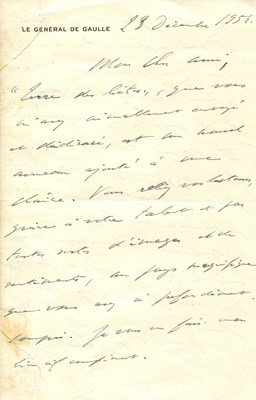 LE GÉNÉRAL DE GAULLE
23 Décembre 195
Mon cher ami,
"Terre des bêtes", que vous
m'avez aimablement envoyé
et dédicacé, est un nouvel
anneau ajouté à une
chaîne. Vous vos lecteurs,
grâce à votre talent et par
toutes sortes d'images et de
sentiments, au pays magnifique
que vous avez si profondément
compris. Je vous en fais mon
bien vif compliment.